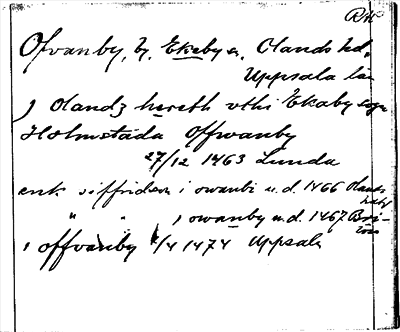 RA
Ofvanby, by, Ekeby sn, Olands hd,
Uppsala län
J Olandz hæreth vthi Ekaby sogn
Holmstada Offwanby
27/12 1463 Lunda
ank siffridsson i owanbi u.d. 1466 Olands
" " i owanby u.d. 1467
i offvanby 4/4 1474 Uppsala